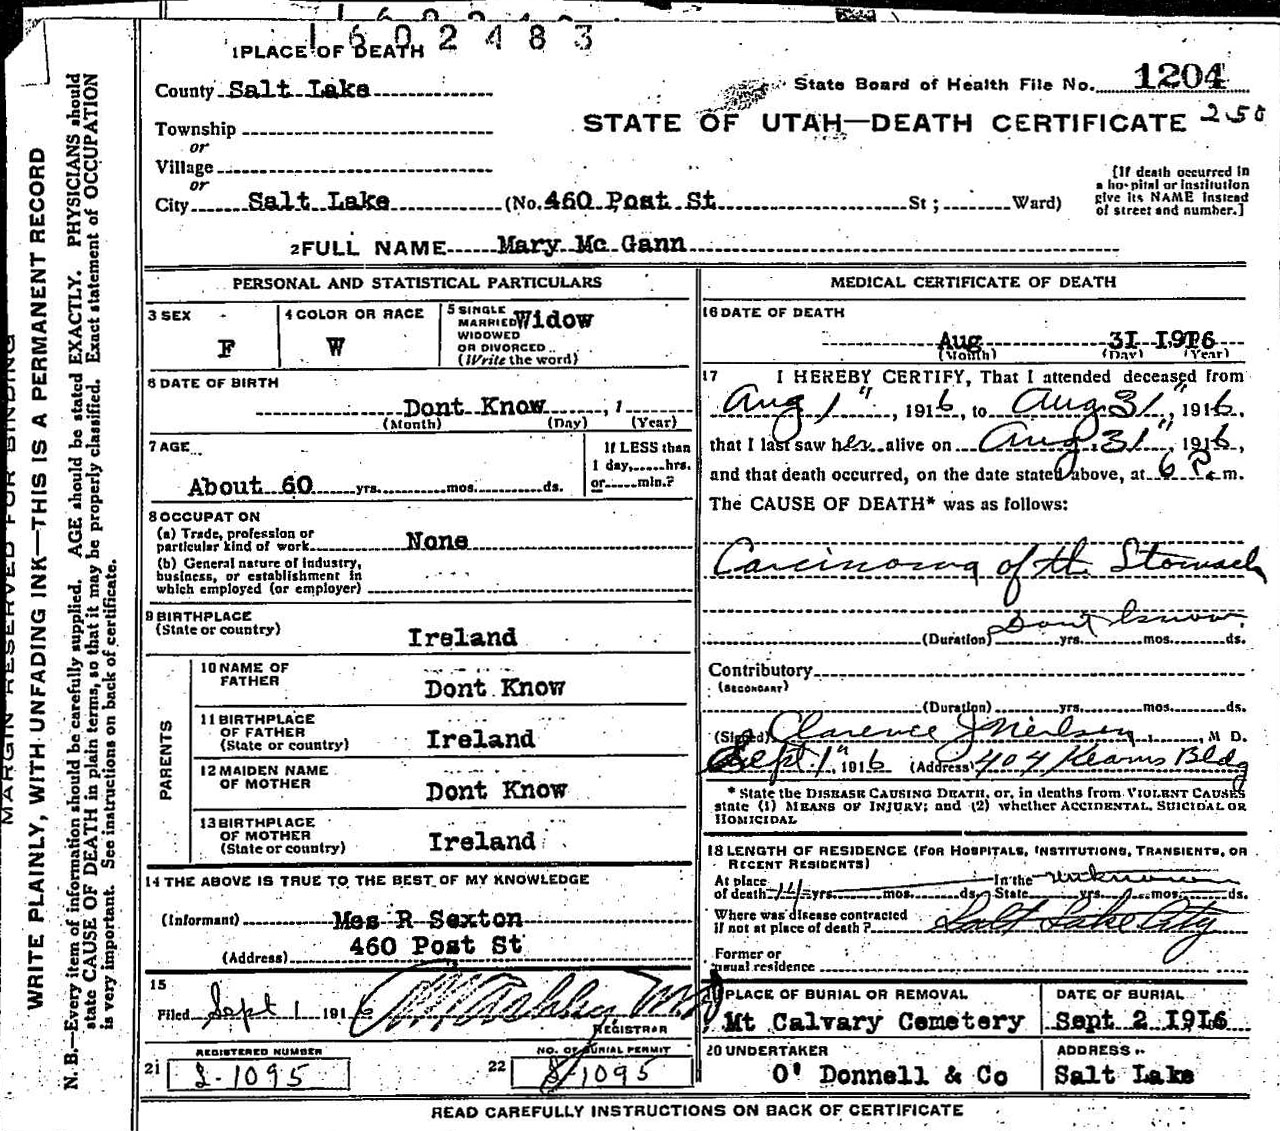 1602483
1 PLACE OF DEATH
County Salt Lake
State Board of Health File No. 1204
Township
or
STATE OF UTAH—DEATH CERTIFICATE 250
Village
or
City Salt Lake (No. 460 Post St St; Ward)
[If death occurred in a hospital or institution give its NAME instead of street and number.]
2 FULL NAME Mary Mc Gann
PERSONAL AND STATISTICAL PARTICULARS
3 SEX
F
4 COLOR OR RACE
W
5 SINGLE
MARRIED Widow
WIDOWED
OR DIVORCED
(Write the word)
6 DATE OF BIRTH
Dont Know , 1
(Month) (Day) (Year)
7 AGE
About 60 yrs. mos. ds.
If LESS than
1 day, hrs.
or min.?
8 OCCUPATON
(a) Trade, profession or
particular kind of work None
(b) General nature of industry,
business, or establishment in
which employed (or employer)
9 BIRTHPLACE
(State or country) Ireland
PARENTS
10 NAME OF
FATHER Dont Know
11 BIRTHPLACE
OF FATHER
(State or country) Ireland
12 MAIDEN NAME
OF MOTHER Dont Know
13 BIRTHPLACE
OF MOTHER
(State or country) Ireland
14 THE ABOVE IS TRUE TO THE BEST OF MY KNOWLEDGE
(Informant) Mes R Sexton
(Address) 460 Post St
15
Filed Sept 1 191 6
REGISTRAR
REGISTERED NUMBER
21 1095
NO. OF BURIAL PERMIT
22 1095
MEDICAL CERTIFICATE OF DEATH
16 DATE OF DEATH
Aug 31 1916
(Month) (Day) (Year)
17 I HEREBY CERTIFY, That I attended deceased from
Aug 1", 1916, to Aug 31", 1916,
that I last saw her alive on Aug 31", 1916,
and that death occurred, on the date stated above, at 6 P. m.
The CAUSE OF DEATH* was as follows:
Carcinoma of the Stomach
Dont know
(Duration) yrs. mos. ds.
Contributory
(SECONDARY)
(Duration) yrs. mos. ds.
(Signed) Clarence J Nielsen, M D.
Sept 1", 1916 (Address) 404 Kearns Bldg
* State the DISEASE CAUSING DEATH, or, in deaths from VIOLENT CAUSES
state (1) MEANS OF INJURY; and (2) whether ACCIDENTAL, SUICIDAL OR
HOMICIDAL
18 LENGTH OF RESIDENCE (FOR HOSPITALS, INSTITUTIONS, TRANSIENTS, OR
RECENT RESIDENTS)
At place In the unknown
of death 14 yrs. mos. ds. State yrs. mos. ds.
Where was disease contracted
if not at place of death? Salt Lake City
Former or
usual residence
PLACE OF BURIAL OR REMOVAL
Mt Calvary Cemetery
DATE OF BURIAL
Sept 2 1916
20 UNDERTAKER
O' Donnell & Co
ADDRESS
Salt Lake
READ CAREFULLY INSTRUCTIONS ON BACK OF CERTIFICATE
MARGIN RESERVED FOR BINDING
WRITE PLAINLY, WITH UNFADING INK—THIS IS A PERMANENT RECORD
N. B.—Every item of information should be carefully supplied. AGE should be stated EXACTLY. PHYSICIANS should
state CAUSE OF DEATH in plain terms, so that it may be properly classified. Exact statement of OCCUPATION
is very important. See instructions on back of certificate.